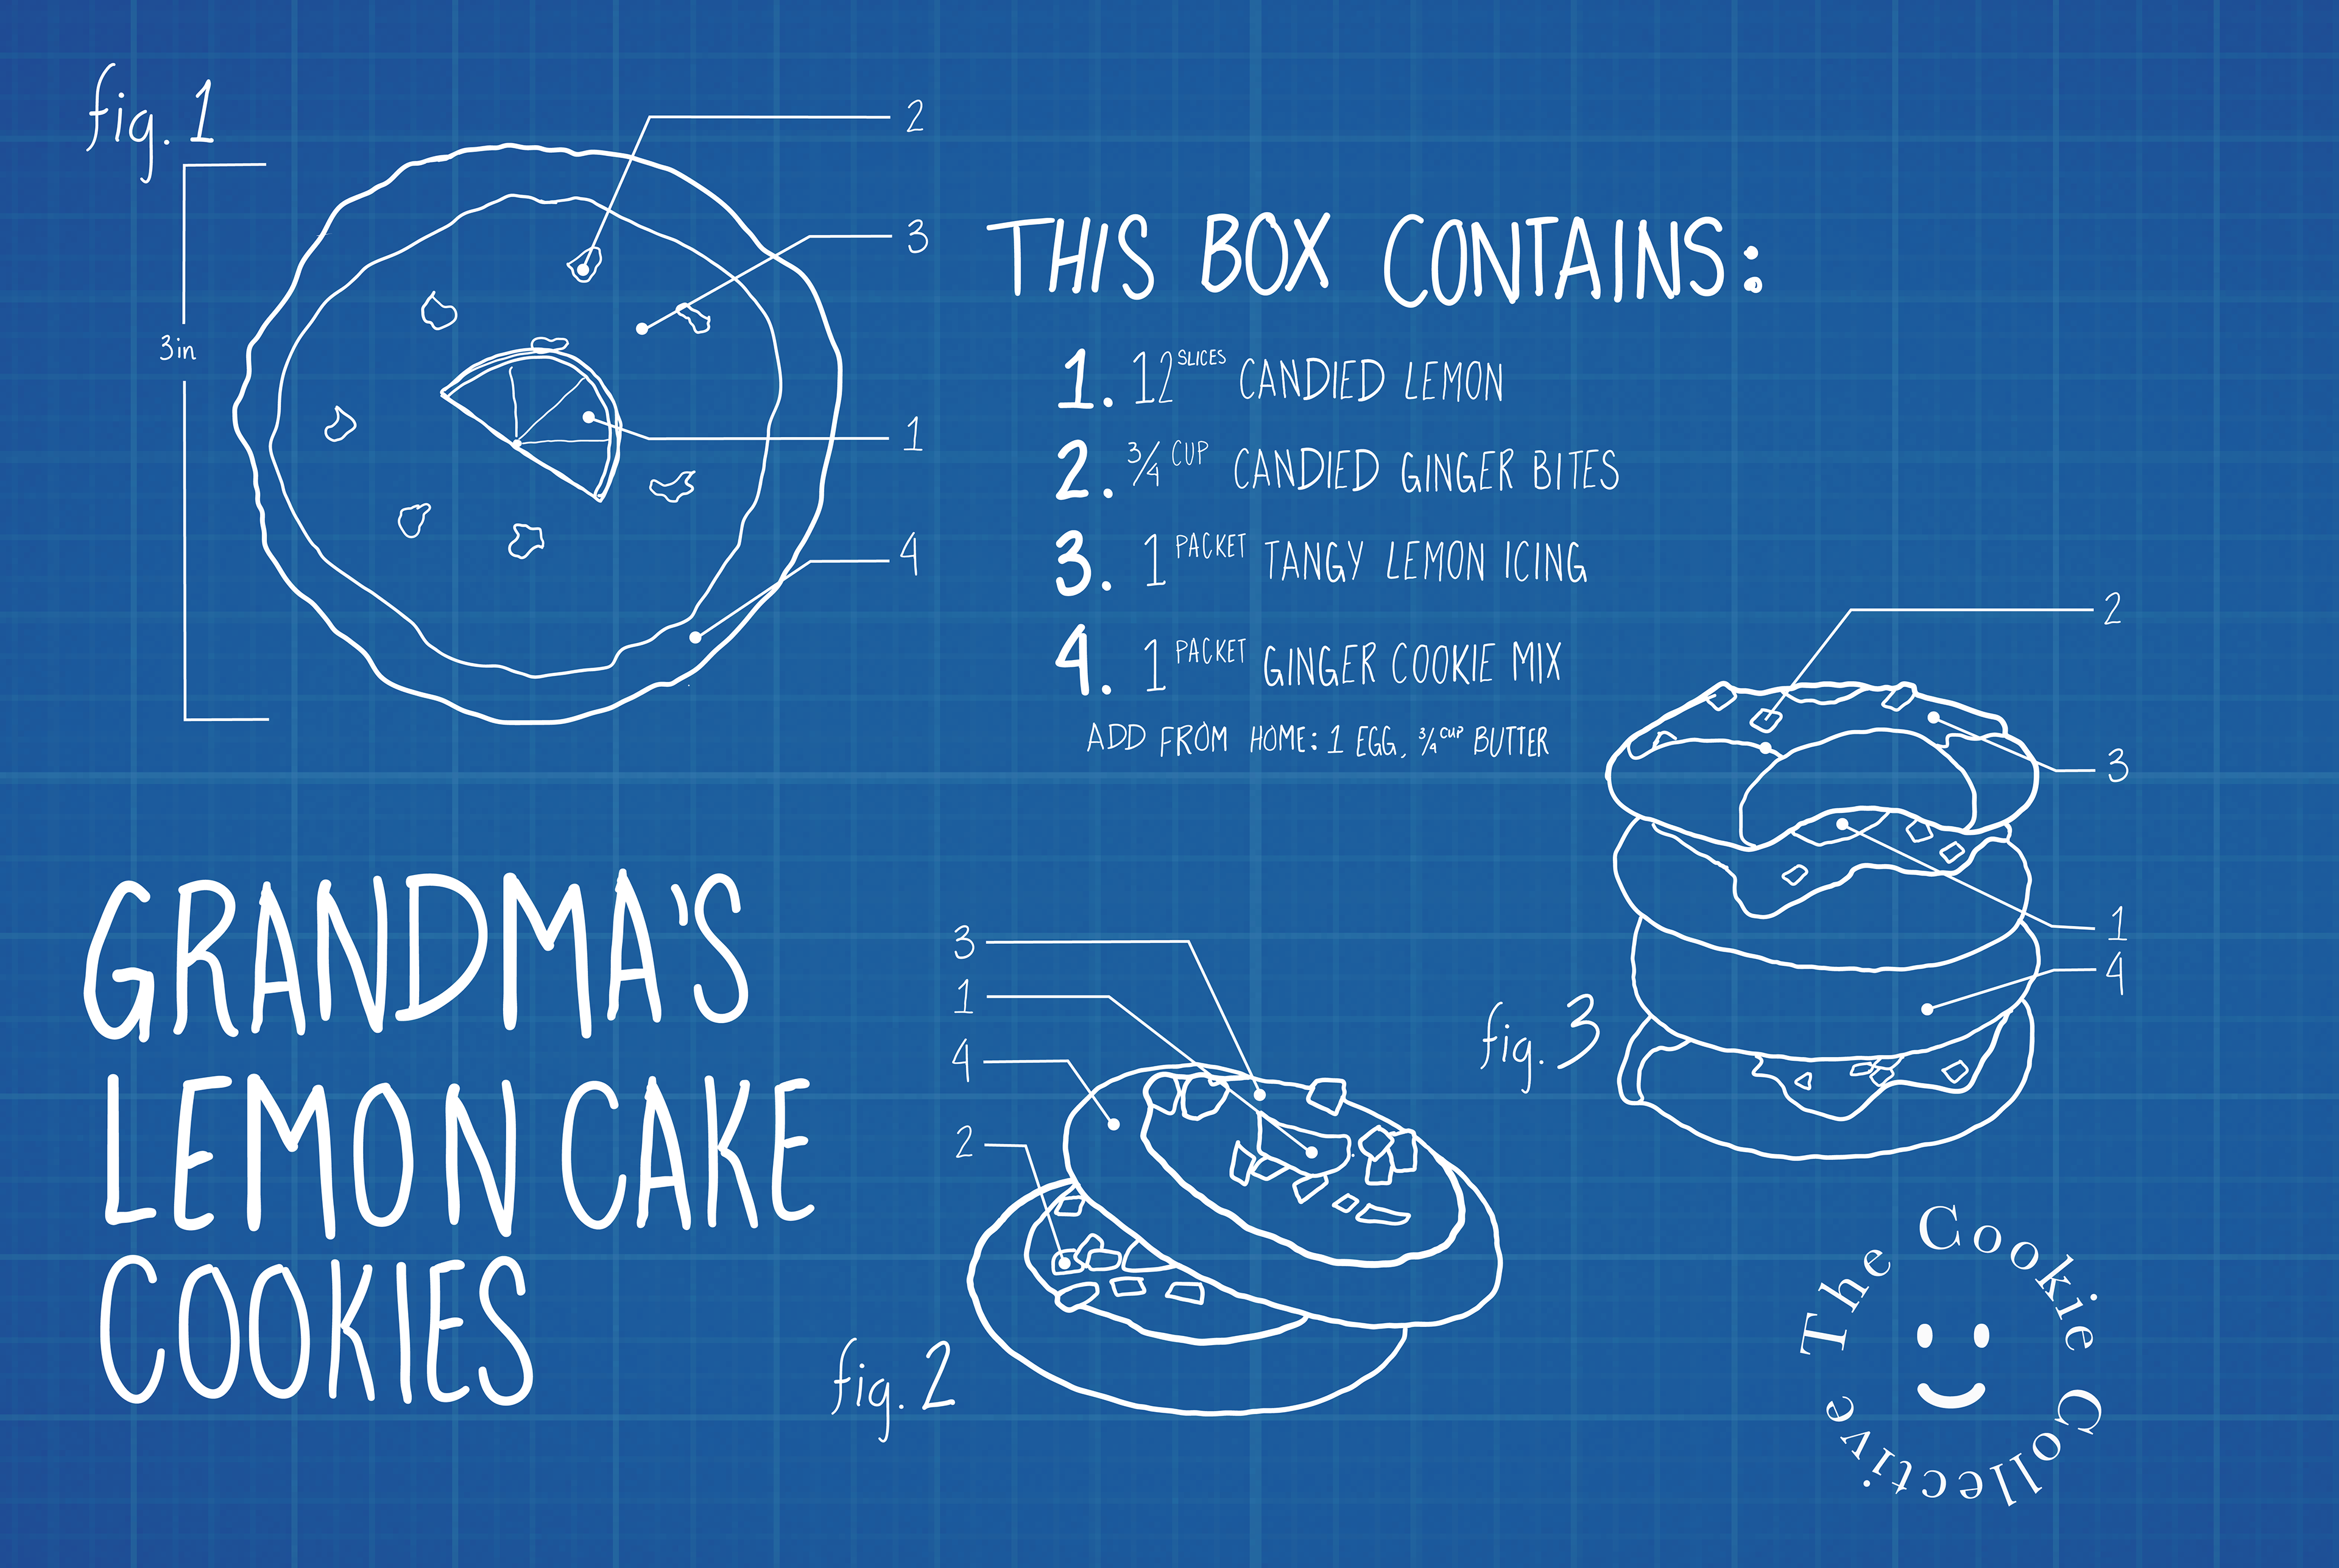 fig. 1
3in
2
3
1
4
THIS BOX CONTAINS:
1. 12 SLICES CANDIED LEMON
2. 3/4 CUP CANDIED GINGER BITES
3. 1 PACKET TANGY LEMON ICING
4. 1 PACKET GINGER COOKIE MIX
ADD FROM HOME: 1 EGG, 3/4 CUP BUTTER
GRANDMA'S
LEMON CAKE
COOKIES
3
1
4
2
fig. 2
2
3
1
4
fig. 3
The Cookie Collective